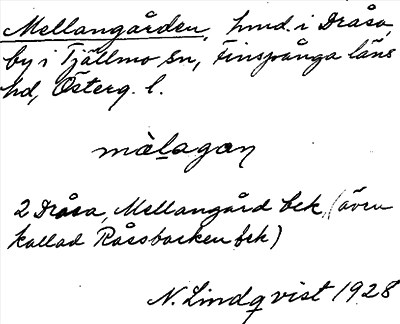 Mellangården, hmd. i Dråsa,
by i Tjällmo sn, Finspånga läns
hd, Österg. l.
màlagan
2 Dråsa, Mellangård bek (även
kallad Råssbacken bek)
N. Lindqvist 1928